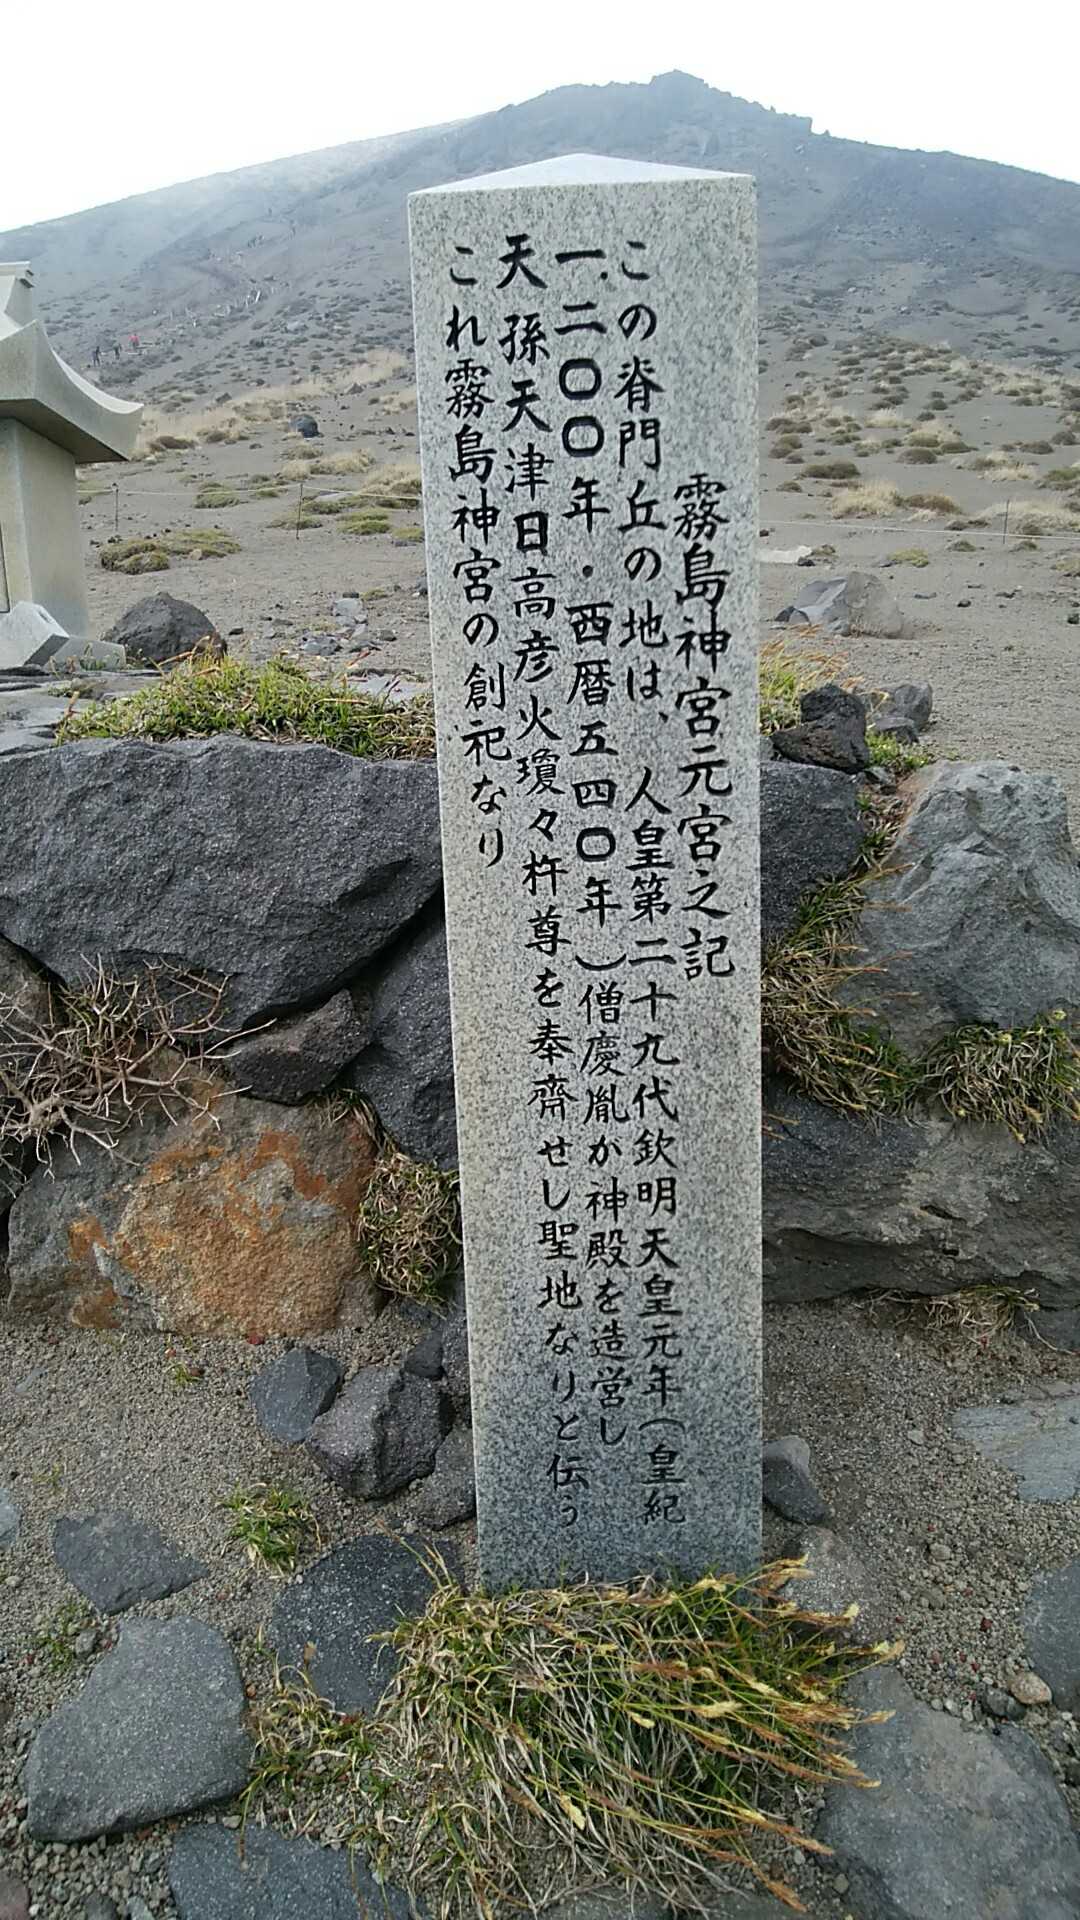 霧島神宮元宮之記
この脊門丘の地は、人皇第二十九代欽明天皇元年(皇紀
一、二〇〇年・西暦五四〇年)僧慶胤が神殿を造営し
天孫天津日高彦火瓊々杵尊を奉齊せし聖地なりと伝う
これ霧島神宮の創祀なり